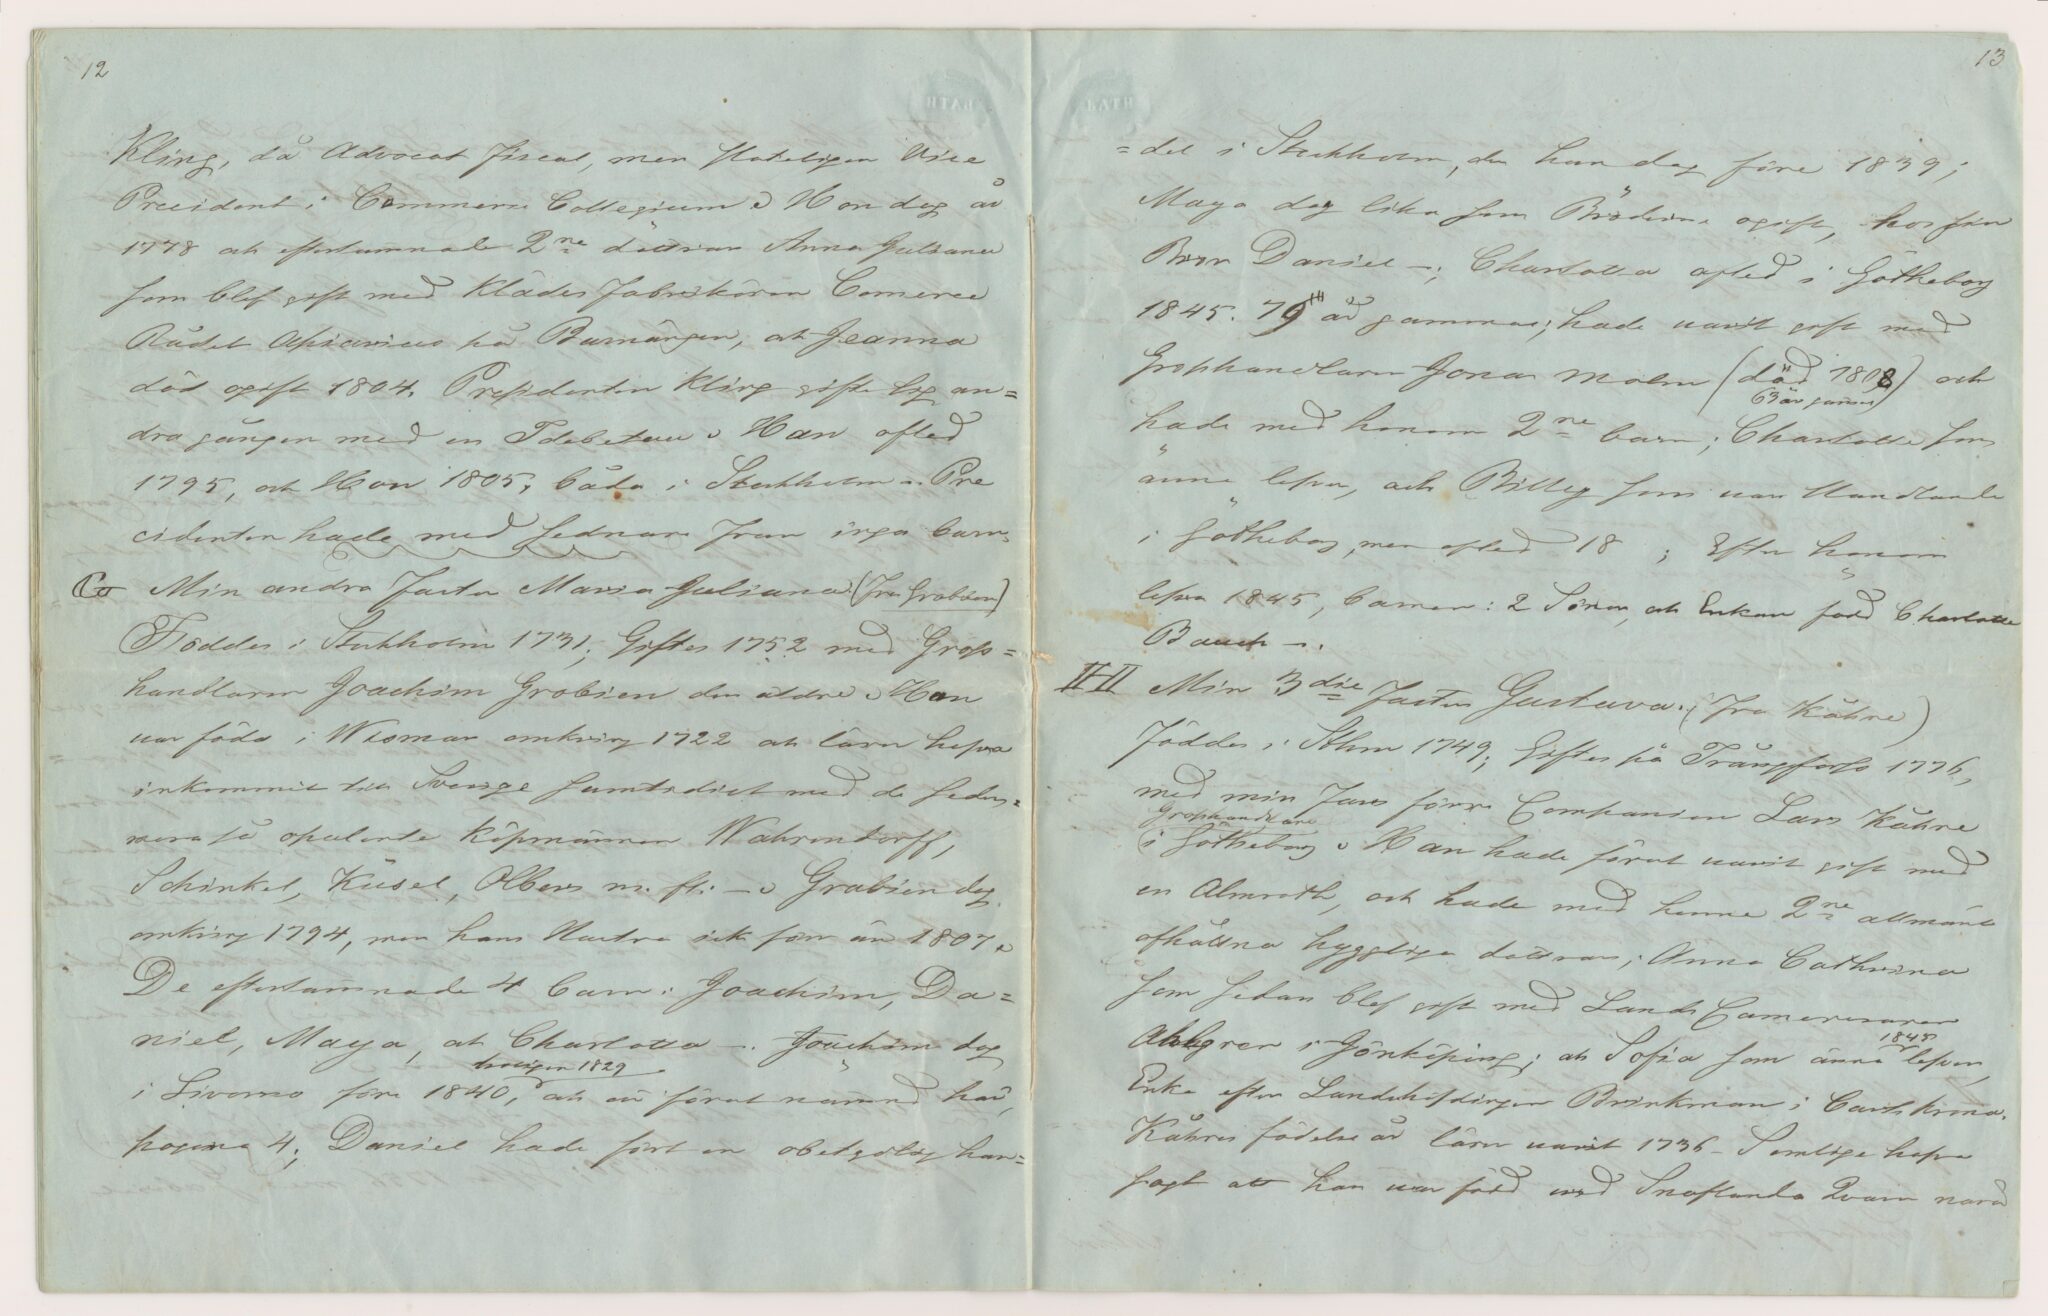 12
Kling, då Advocat fiscal, men sluteligen Vice
President i Commerce Collegium. Hon dog år
1778 och efterlamnade 2ne döttrar Anna Juliana
som blef gift med Klädes fabrikören Comerce
Rådet Apiarius på Barnängen, och Jeanna
död ogift 1804. Presidenten Kling gifte sig an=
dra gången med en Idebetau. Han afled
1795, och Hon 1805, båda i Stockholm. Pre
cidenten hade med sednare frun inga barn.
Min andra faster Maria Juliana (fru Grobien)
Föddes i Stockholm 1731; Giftes 1752 med Gross=
handlaren Joachim Grobien den äldre. Han
var född i Wismar omkring 1722 och lärer hafva
inkommit till Sverige samtidict med de seder=
mera så opulenta köpmännen Wahrendorff,
Schinkel, Küsel, Olbers m. fl. Grobien dog
omkring 1794, men hans Hustru ick förr än 1807.
De efterlämnade 4 barn: Joachim, Da=
niel, Maya, och Charlotta. Joachim dog
troligen 1829
i Livorno före 1840, och är förut nämnd här,
pagina 4; Daniel hade fört en obetydlig han=
13
=del i Stockholm, der han dog före 1839;
Maya dog lika som Bröderne ogift, hos sin
Bror Daniel; Charlotta afled i Götheborg
1845. 79 år gammal; hade varit gift med
Grosshandlaren Jonas Malm (död 1808) och
63 år gammal
hade med honom 2ne barn; Charlotte som
ännu lefver, och Billy som var Handlande
i Götheborg, men afled 18 ; Efter honom
lefva 1845, barnen: 2 Söner, och Enkan född Charlotte
Bauck.
Min 3die faster Gustava. (fru Kåhre)
föddes i Sthm 1749; Giftes på Trångfors 1776,
med min fars förre Companion Lars Kåhre
Grosshandlare
i Götheborg. Han hade förut varit gift med
en Almroth, och hade med henne 2ne allmänt
afhållna hyggliga döttrar; Anna Cathrina
som sedan blef gift med Lands Camereraren
Ahlgren i Jönköping; och Sofia som ännu lefver,
1845
Enka efter Landshöfdingen Brinkman i Carlskrona.
Kåhres födelse år lärer varit 1736 - Somlige hafva
sagt att han var född vid Snaflunda Qvarn norr